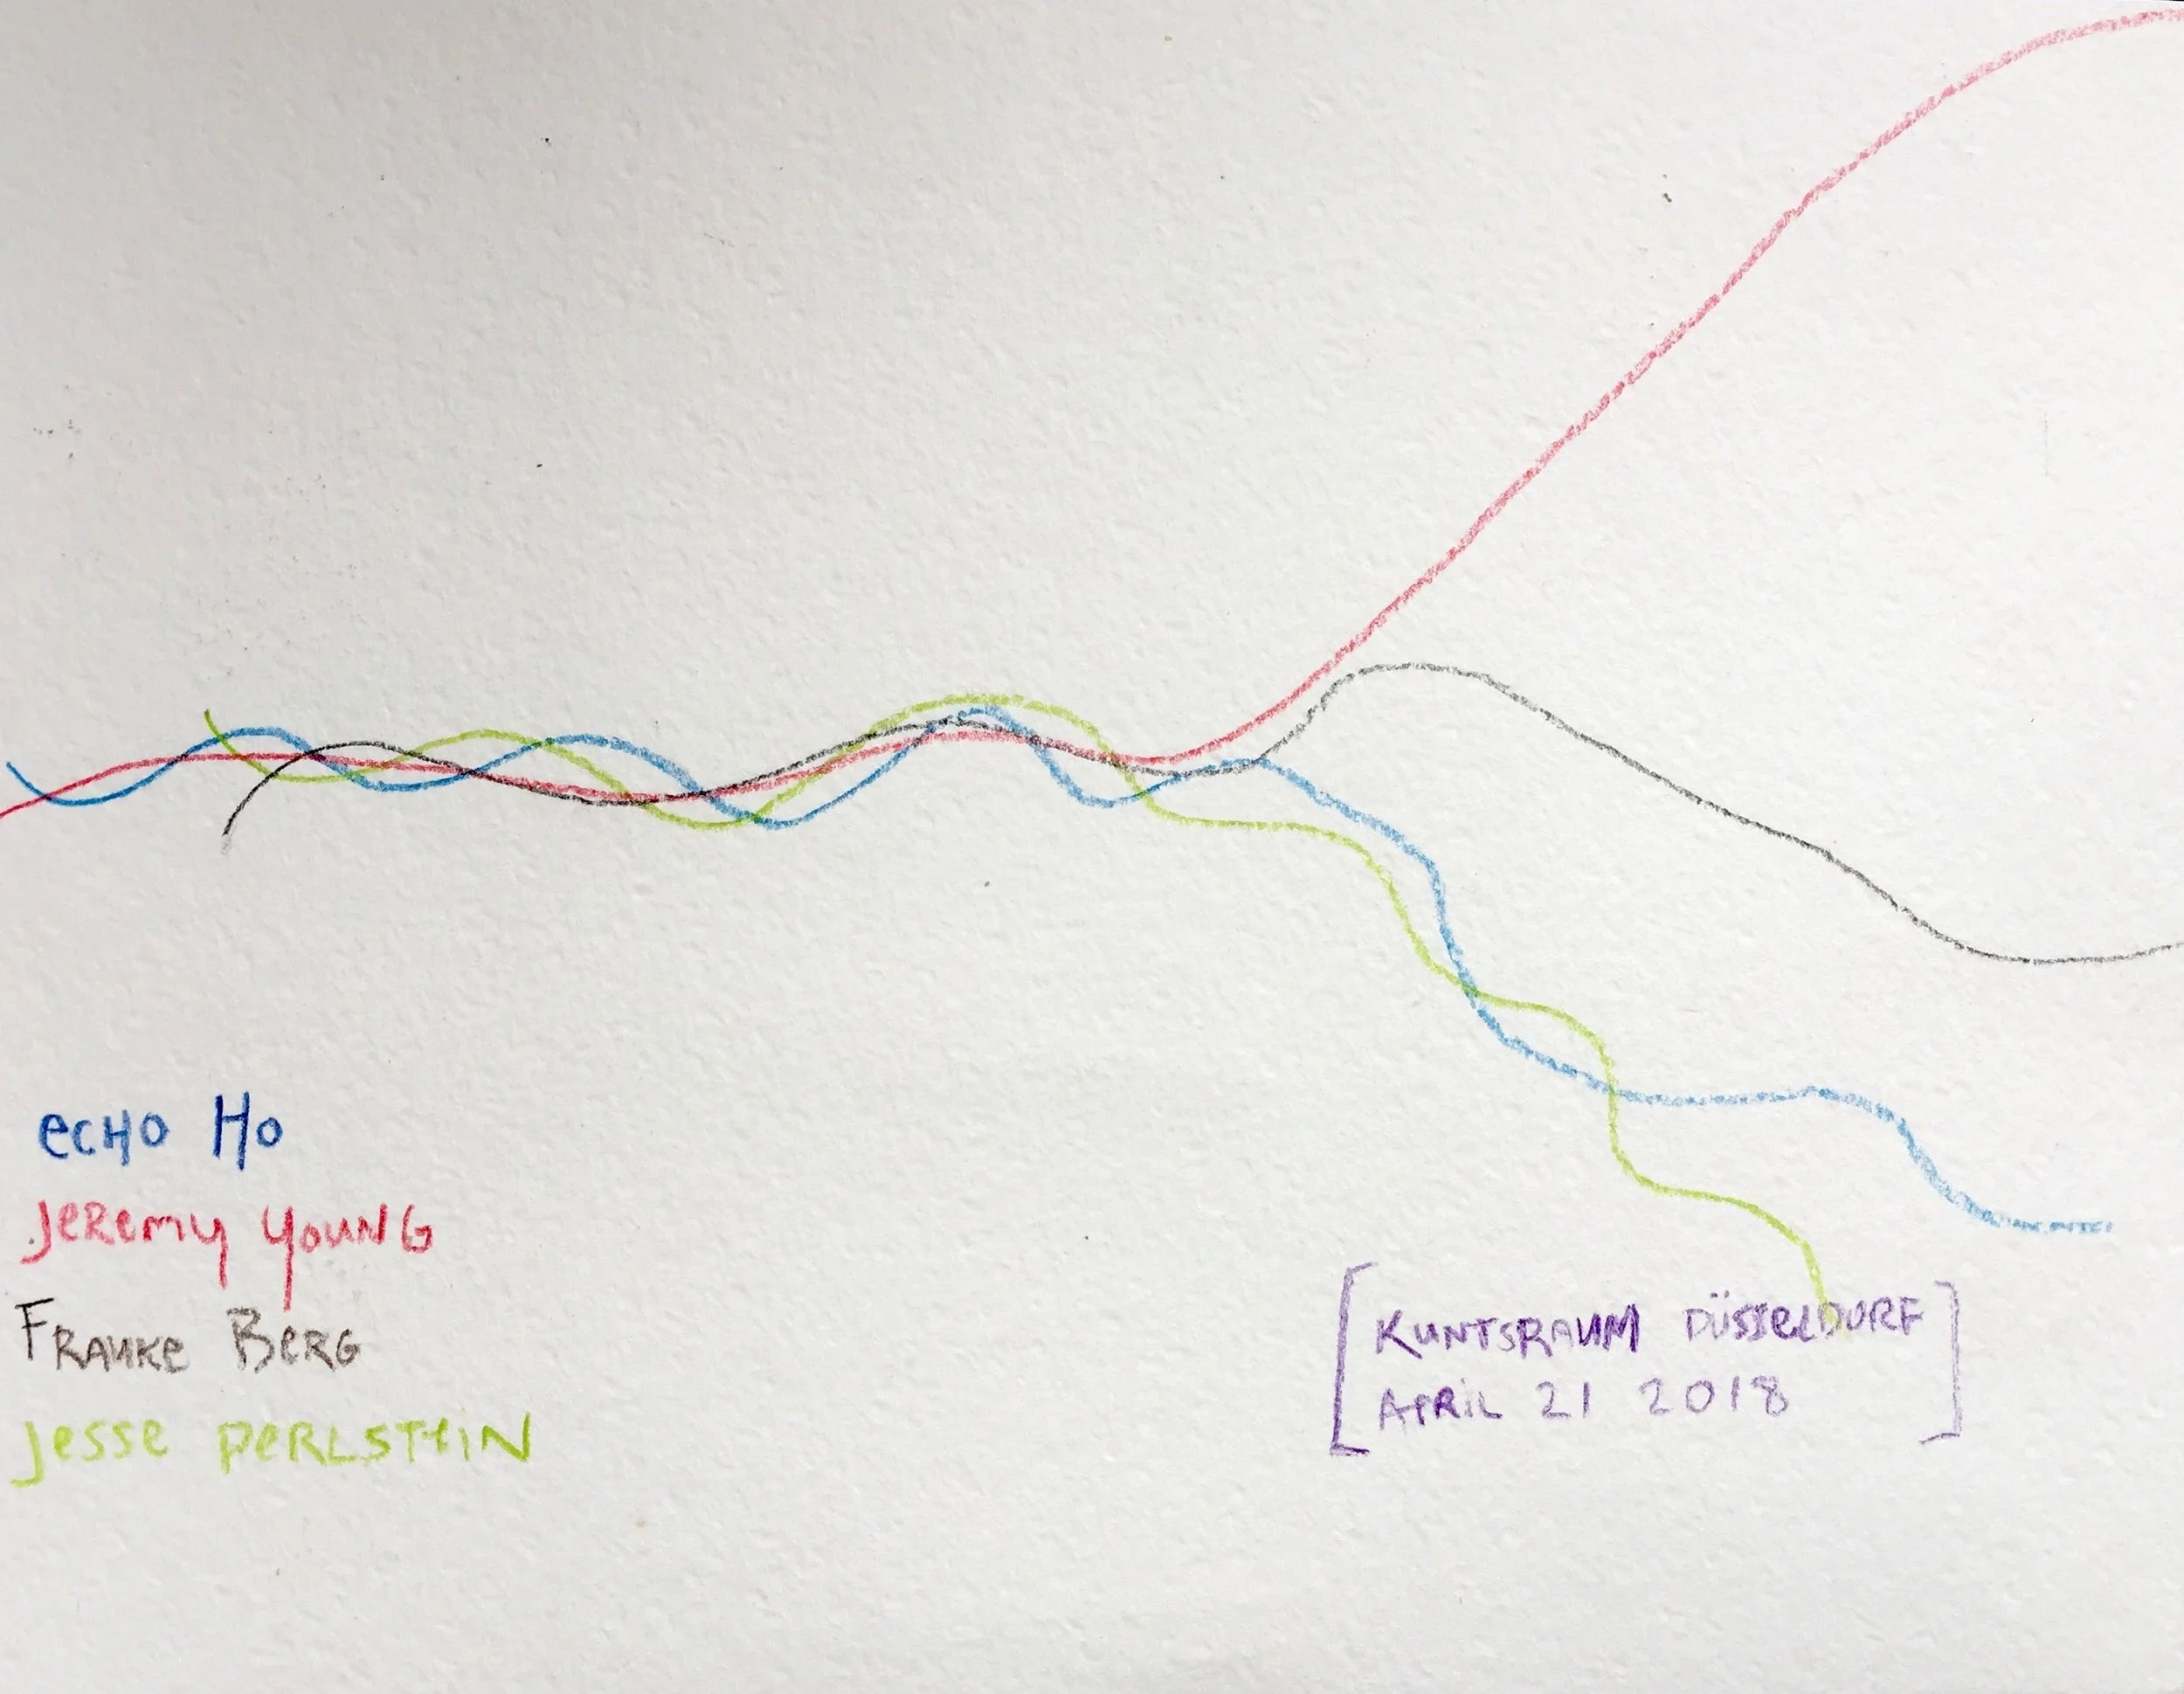 eCHO HO
JeRemy YOUNG
FRAUKe BeRG
Jesse PeRLSTeiN
[KUNTSRAUM DÜSSeLDORF
APRiL 21 2018]